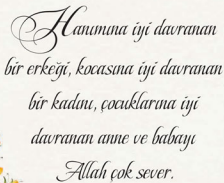 Hanımına iyi davranan
bir erkeği, kocasına iyi davranan
bir kadını, çocuklarına iyi
davranan anne ve babayı
Allah çok sever.